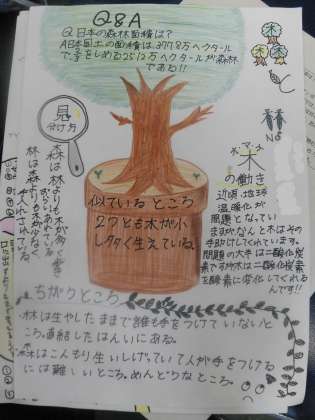 Q&A
Q 日本の森林面積は?
A 日本国土の面積は3778万ヘクタール
でをしめる2512万ヘクタールが森林
である!!
木
林
No
見
分け方
森は林よりも木が多く
林は森よりも木が少なく
手入れされている。
木
の働き
近頃、地球
温暖化が
問題となってい
ますがなんと木はその
手助けしてくれています。
問題の大半は二酸化炭
素ですが木は二酸化炭素
を酸素に変化してくれる
んです!!
似ているところ
2つとも木が
たく生えている。
ちがうところ
・林は生やしたままで誰も手をつけていないと
ころ。直結したはんいにある。
・森はこんもり生いしげていて人が手をつける
には難しいところ。めんどうなところ。